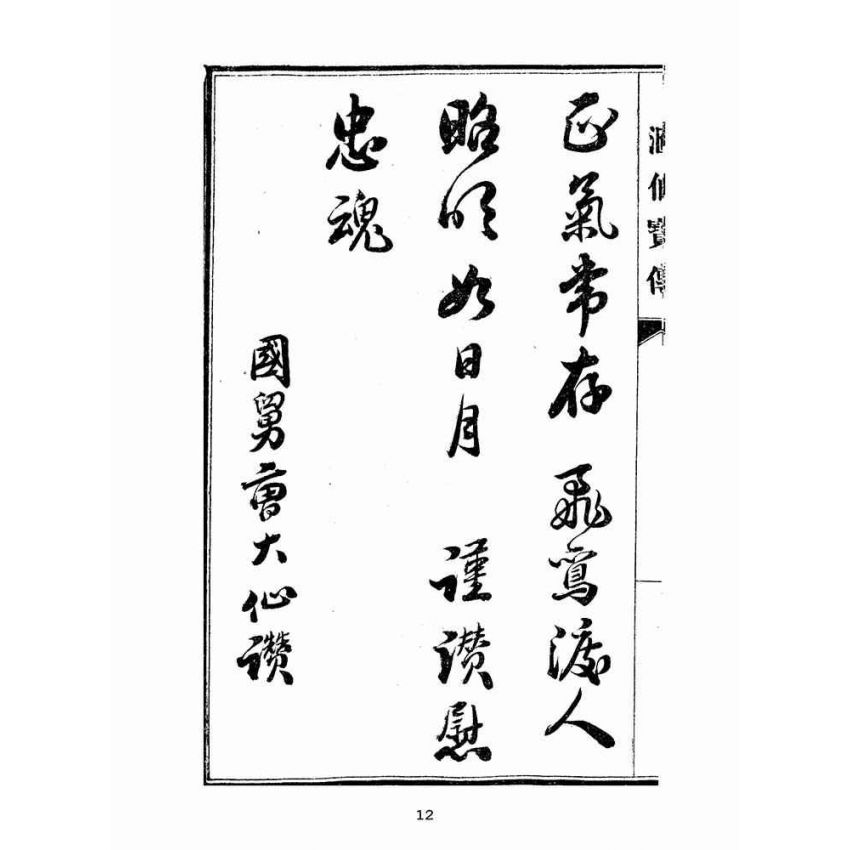 寶傳
正氣常存 飛鸞渡人
昭明如日月 謹讚慰
忠魂
國舅曹大仙讚
12